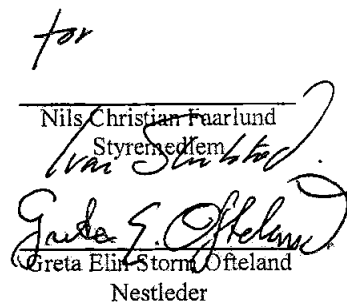 for
Nils Christian Faarlund
Styremedlem
Ivar
Greta E. Ofteland
Greta Elin Storm Ofteland
Nestleder